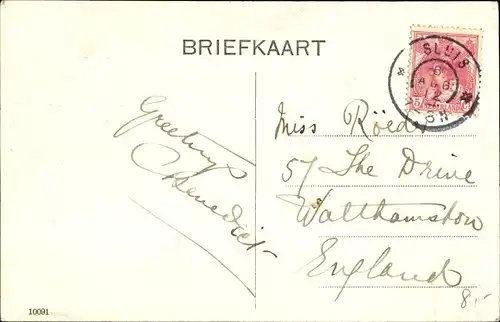 BRIEFKAART
SLUIS
5
Greetings
Benedict
Miss
57 The Drive
Walthamstow
England
10091